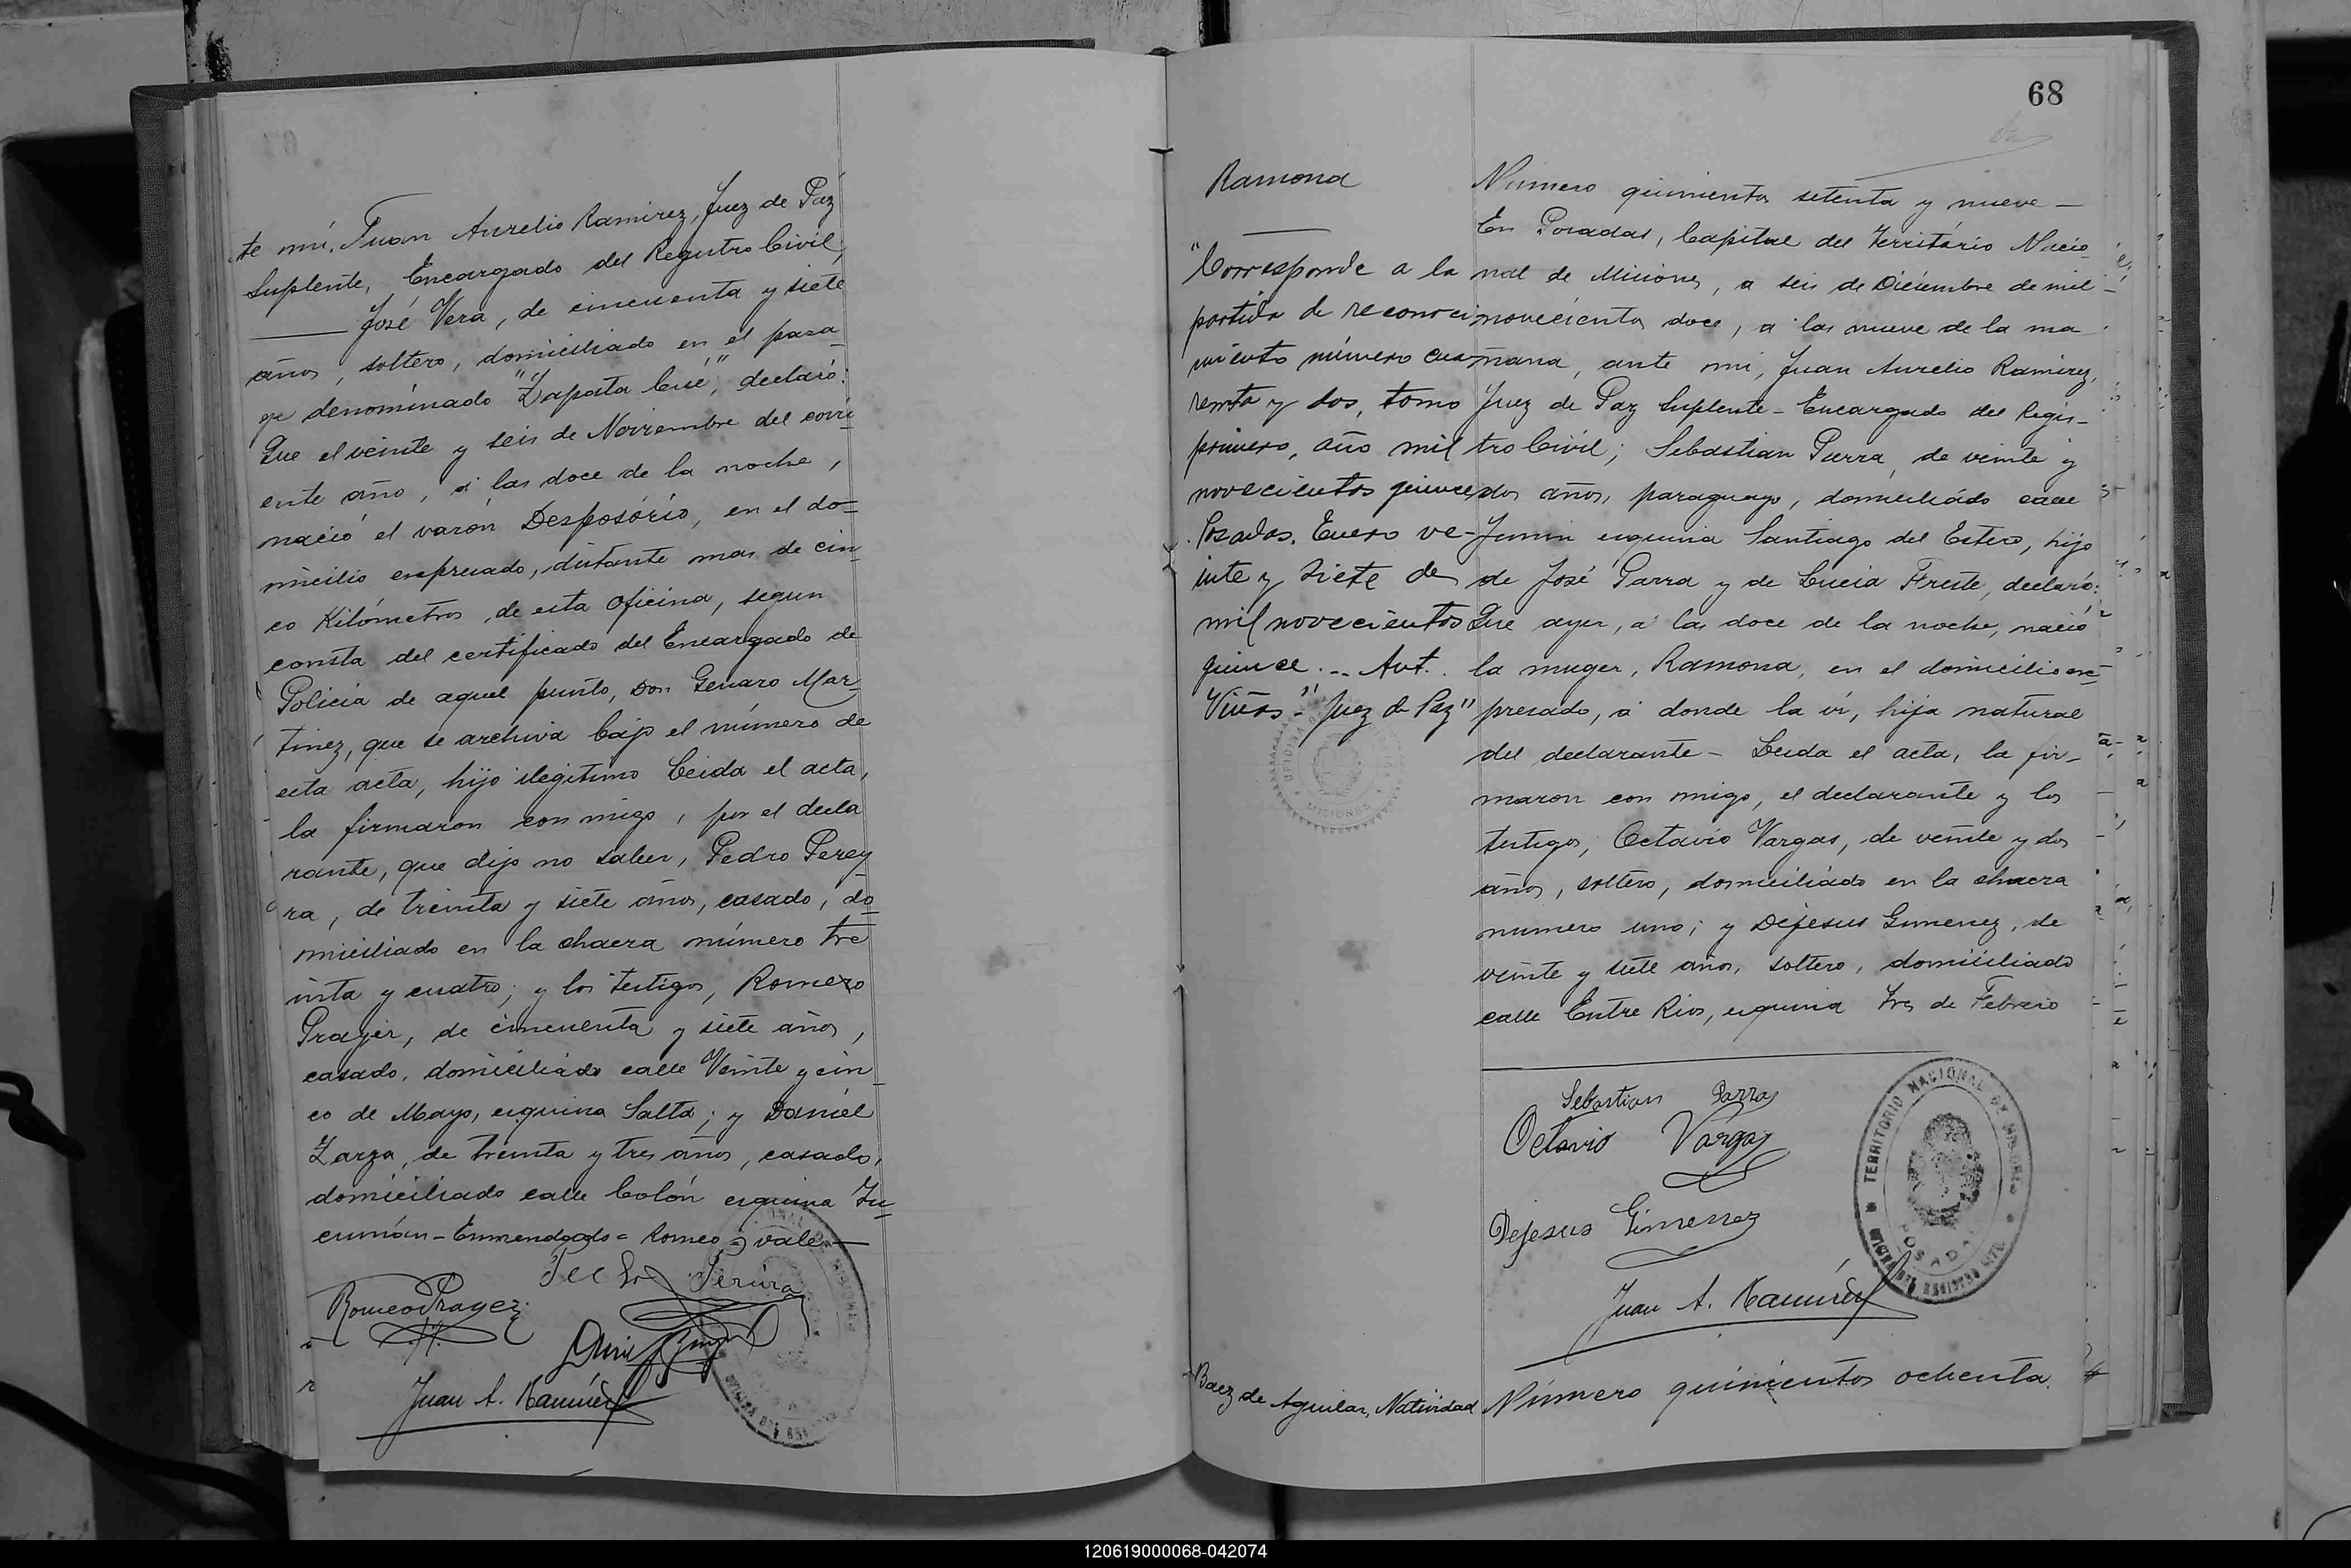 te mí, Juan Aurelio Ramirez, Juez de Paz
Suplente, Encargado del Registro Civil,
José Vera, de cincuenta y siete
años, soltero, domiciliado en el para-
ge denominado "Zapata Cué", declaró:
Que el veinte y seis de Noviembre del corri
ente año, á las doce de la noche,
nació el varón Desposório, en el do-
micilio expresado, distante mas de cin-
co Kilómetros, de esta oficina, segun
consta del certificado del Encargado de
Policía de aquel punto, Don Genaro Mar-
tinez, que se archiva bajo el número de
esta acta, hijo ilegítimo Leida el acta,
la firmaron con migo, por el decla
rante, que dijo no saber, Pedro Perey
ra, de treinta y siete años, casado, do-
miciliado en la chacra número tre
inta y cuatro; y los testigos, Romeo
Prayer, de cincuenta y siete años,
casado, domiciliado calle Veinte y cin-
co de Mayo, esquina Salta; y Daniel
Zarza, de treinta y tres años, casado,
domiciliado calle Colón esquina Tu-
cumán - Enmendado = Romeo = vale
Pereira
Romeo Prayer
Juan A. Ramírez
68
Ramona
"Corresponde a la
partida de reconoci
miento número cua
renta y dos, tomo
primero, año mil
novecientos quince
Posadas, Enero ve-
inte y siete de
mil novecientos
quince. - Ant.
Viñas - Juez de Paz"
MISIONES
Número quinientos setenta y nueve -
En Posadas, Capital del Território Nacio-
nal de Misiones, a seis de Diciembre de mil
novecientos doce, a las nueve de la ma
ñana, ante mi, Juan Aurelio Ramirez,
Juez de Paz Suplente - Encargado del Regis-
tro Civil; Sebastian Parra, de veinte y
dos años, paraguayo, domiciliado calle
Junin esquina Santiago del Estero, hijo
de José Parra y de Lucia Frete, declaró:
Que ayer, a las doce de la noche, nació
la muger, Ramona, en el domicilio ex-
presado, a donde la ví, hija natural
del declarante - Leida el acta, la fir-
maron con migo, el declarante y los
testigos, Octavio Vargas, de veinte y dos
años, soltero, domiciliado en la chacra
numero uno; y Dejesus Gimenez, de
veinte y siete años, soltero, domiciliado
calle Entre Rios, esquina Tres de Febrero
Sebastian Parra
Octavio Vargas
Dejesus Gimenez
Juan A. Ramírez
TERRITORIO NACIONAL DE MISIONES
OFICINA DEL REGISTRO CIVIL
POSADAS
Baez de Aguilar, Natividad
Número quinientos ochenta.
120619000068-042074